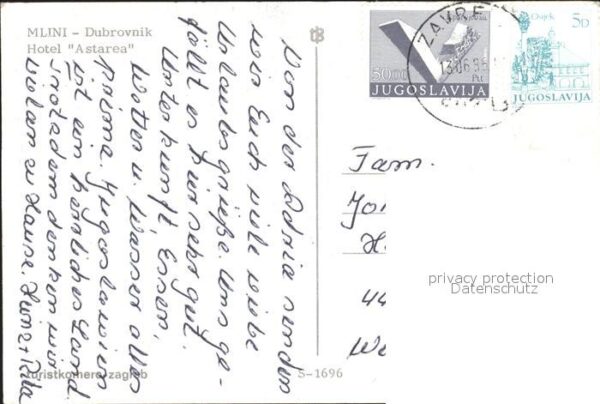 MLINI – Dubrovnik
Hotel "Astarea"
Von der Adria senden
wir Euch viele liebe
Urlaubsgrüße. Uns ge-
fällt es hier sehr gut.
Unterkunft, Essen,
Wetter u. Wasser alles
prima. Jugoslawien
ist ein herrliches Land
Trotzdem denken wir
an zu Hause. Heinz + Rita
turistkomerc zagreb
S-1696
50.00
JUGOSLAVIJA
Osijek 5D
JUGOSLAVIJA
Fam.
44
privacy protection
Datenschutz